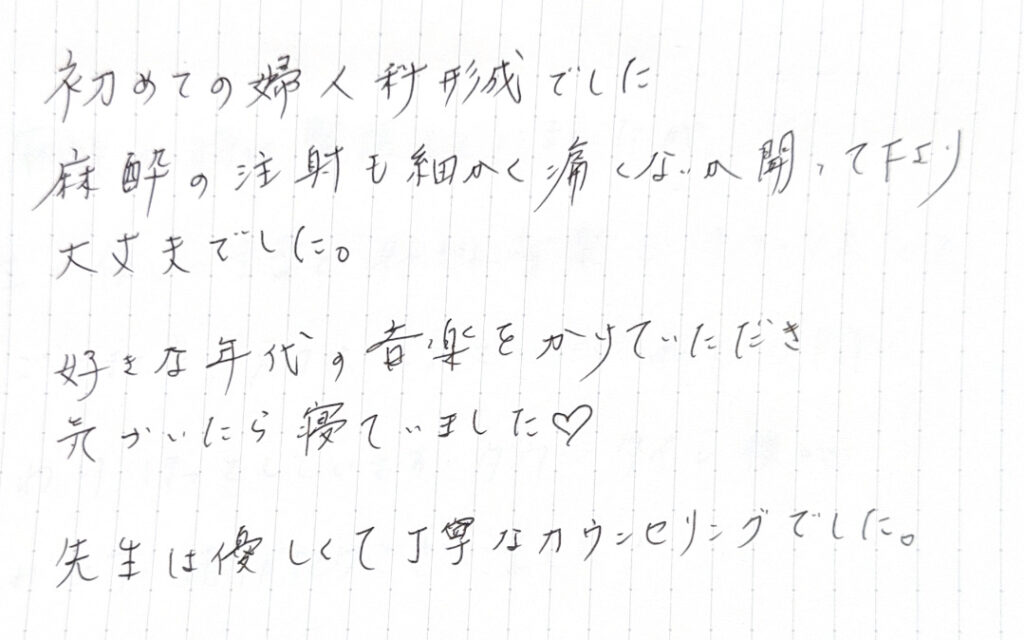 初めての婦人科形成でした
麻酔の注射も細かく痛くないか聞って下エリ
大丈夫でした。
好きな年代の音楽をかけていただき
気がいたら寝ていました♡
先生は優しくて丁寧なカウンセリングでした。